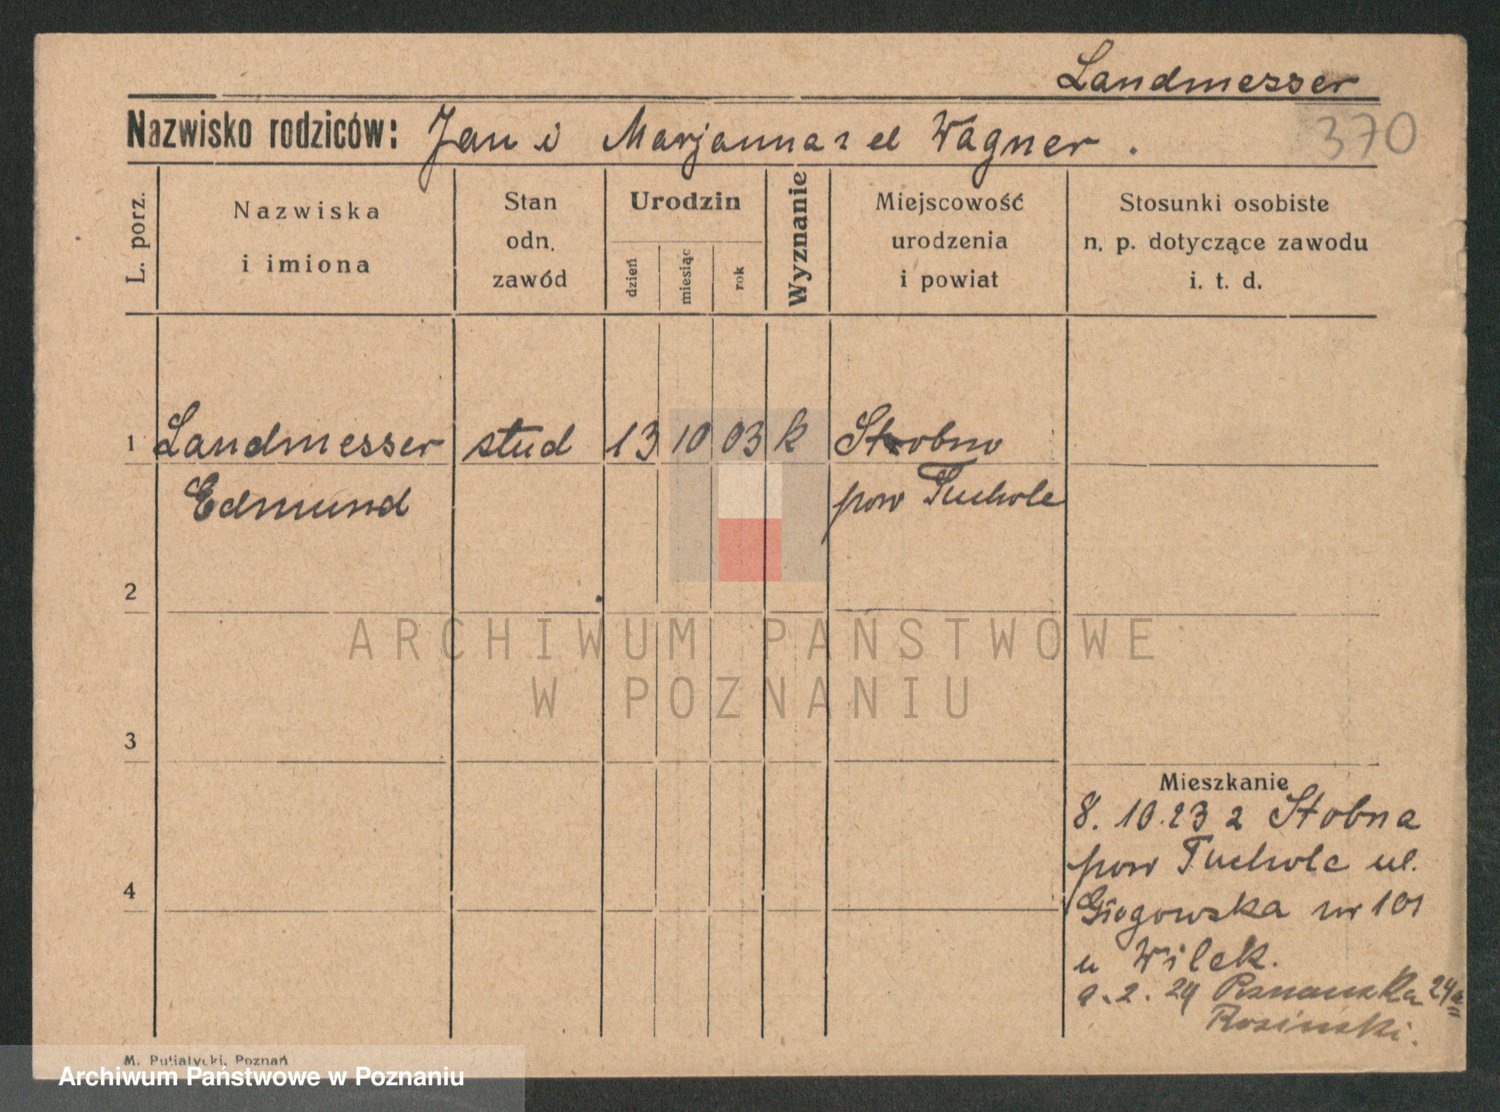 Landmesser
Nazwisko rodziców: Jan i Marjanna z d Wagner.
370
L. porz.
Nazwiska
i imiona
Stan
odn.
zawód
Urodzin
dzień
miesiąc
rok
Wyznanie
Miejscowość
urodzenia
i powiat
Stosunki osobiste
n. p. dotyczące zawodu
i. t. d.
1 Landmesser stud 13 10 03 k Stobno
Edmund pow Tuchole
2
ARCHIWUM PAŃSTWOWE
W POZNANIU
3
Mieszkanie
8. 10.23 z Stobna
pow Tuchole ul.
4
Głogowska nr 101
u Wilek.
9.2.24 Poznańska 24a
Rosiński.
M. Putiatycki, Poznań
Archiwum Państwowe w Poznaniu